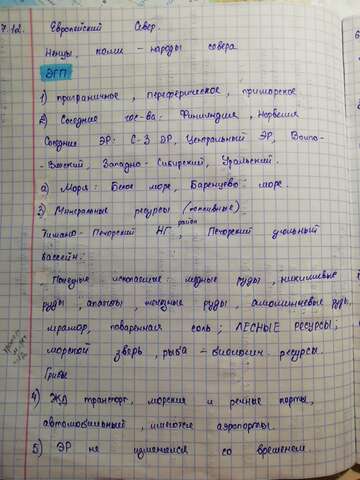 7.12. Европейский Север.
Ненцы, коми - народы севера
ЭГП
1) приграничное, периферическое, приморское
2) Соседние гос-ва: Финляндия, Норвегия
Соседние ЭР: С-З ЭР, Центральный ЭР, Волго-
-Вятский, Западно-Сибирский, Уральский.
а) Моря: Белое море, Баренцево море.
3) Минеральные ресурсы (топливные)
Тимано-Печорский НГ район, Печорский угольный
бассейн.
Полезные ископаемые: медные руды, никелевые
руды, апатиты, железные руды, алюминиевые руды,
мрамор, поваренная соль; ЛЕСНЫЕ РЕСУРСЫ;
морской зверь, рыба - биологич. ресурсы.
Грибы
4) ЖД транспорт, морские и речные порты,
автомобильный, имеются аэропорты.
5) ЭР не изменялся со временем.